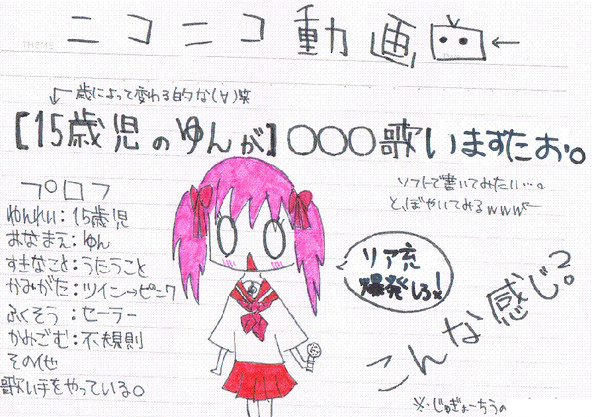 THEME
ニコニコ動画 ←
歳によって変わる的な(∀)笑
【15歳児のゆんが】○○○歌いますたお。
ソフトで書いてみたい…。
と、ぼやいてみるwww
プロフ
ねんれい:15歳児
おなまえ:ゆん
すきなこと:うたうこと
かみがた:ツイン→ピンク
ふくそう:セーラー
かみごむ:不規則
その他
歌い手をやっている。
リア充
爆発しろ!
こんな感じ?
※じゅぎょーちうの